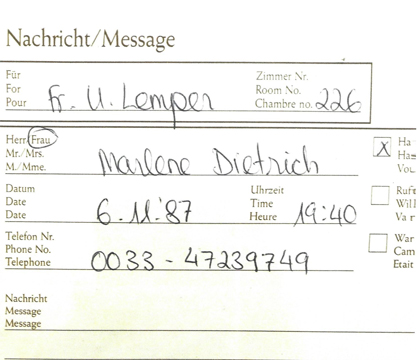 Nachricht/Message
Für
For
Pour
Fr. U. Lemper
Zimmer Nr.
Room No.
Chambre no. 226
Herr/Frau
Mr./Mrs.
M./Mme.
Marlene Dietrich
X Ha
Has
Vou
Datum
Date
Date
6.11.'87
Uhrzeit
Time
Heure
19:40
Ruft
Will
Va r
Telefon Nr.
Phone No.
Telephone
0033 - 47239749
War
Cam
Etait
Nachricht
Message
Message